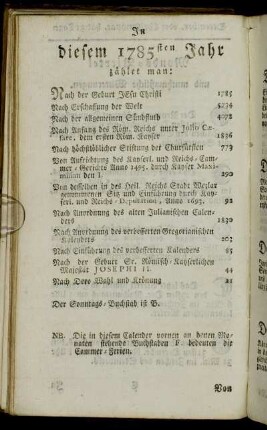 In
diesem 1785sten Jahr
zählet man:
Nach der Geburt JEsu Christi 1785
Nach Erschaffung der Welt 5734
Nach der allgemeinen Sündfluth
Nach Anfang des Röm. Reichs unter Julio Cä-
sare, dem ersten Röm. Kayser
Nach höchstlöblicher Stiftung der Churfürsten
Von Aufrichtung des Kayserl. und Reichs-Cam-
mer-Gerichts Anno 1495. durch Kayser Maxi-
milian den I. 290
Von desselben in des Heil. Reichs Stadt Wezlar
genommenen Sitz und Einführung durch Kay-
serl. und Reichs-Deputation, Anno 1693. 92
Nach Anordnung des alten Julianischen Calen-
ders 1830
Nach Anordnung des verbesserten Gregorianischen
Kalenders 203
Nach Einführung des verbesserten Kalenders 85
Nach der Geburt Sr. Römisch-Kayserlichen
Majestät JOSEPHI II. 44
Nach Dero Wahl und Krönung 21
Der Sonntags-Buchstab ist B.
NB. Die in diesem Calender vornen an denen Mo-
naten stehende Buchstaben F. bedeuten die
Cammer-Ferien.
Von